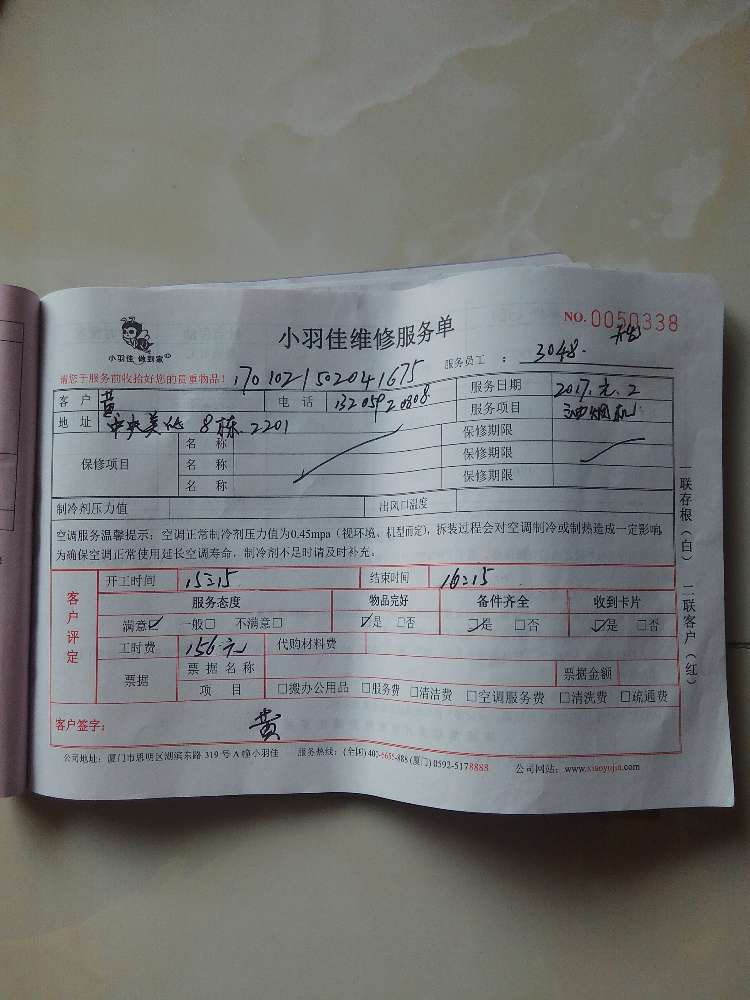 NO.0050338
小羽佳维修服务单
小羽佳 做到家
服务员工 : 3048.
请您于服务前收拾好您的贵重物品! 1701021502041675
客户 黄 电话 13205920808 服务日期 2017.元.2
地址 中央美地 8栋.2201 服务项目 油烟机
保修项目 名称 保修期限
名称 保修期限
名称 保修期限
制冷剂压力值 出风口温度
空调服务温馨提示:空调正常制冷剂压力值为0.45mpa(视环境、机型而定),拆装过程会对空调制冷或制热造成一定影响
为确保空调正常使用延长空调寿命,制冷剂不足时请及时补充。
客户评定
开工时间 15:15 结束时间 16:15
服务态度 物品完好 备件齐全 收到卡片
满意☑ 一般□ 不满意□ ☑是 □否 ☑是 □否 ☑是 □否
工时费 156元 代购材料费
票据 票据名称 票据金额
项目 □搬办公用品 □服务费 □清洁费 □空调服务费 □清洗费 □疏通费
客户签字: 黄
公司地址:厦门市思明区湖滨东路 319 号 A 幢小羽佳 服务热线:(全国) 400-6655-888 (厦门) 0592-5178888 公司网站:www.xiaoyujia.com
一联存根(白) 二联客户(红)